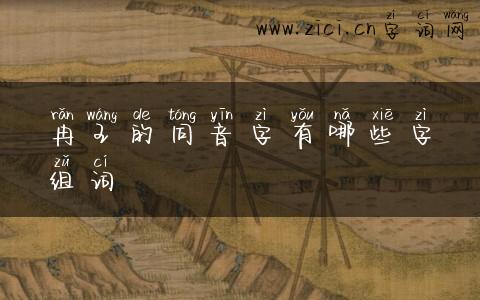 zì cí wǎng
www.zici.cn字词网
rǎn wáng de tóng yīn zì yǒu nǎ xiē zì
冉王的同音字有哪些字
zǔ cí
组词